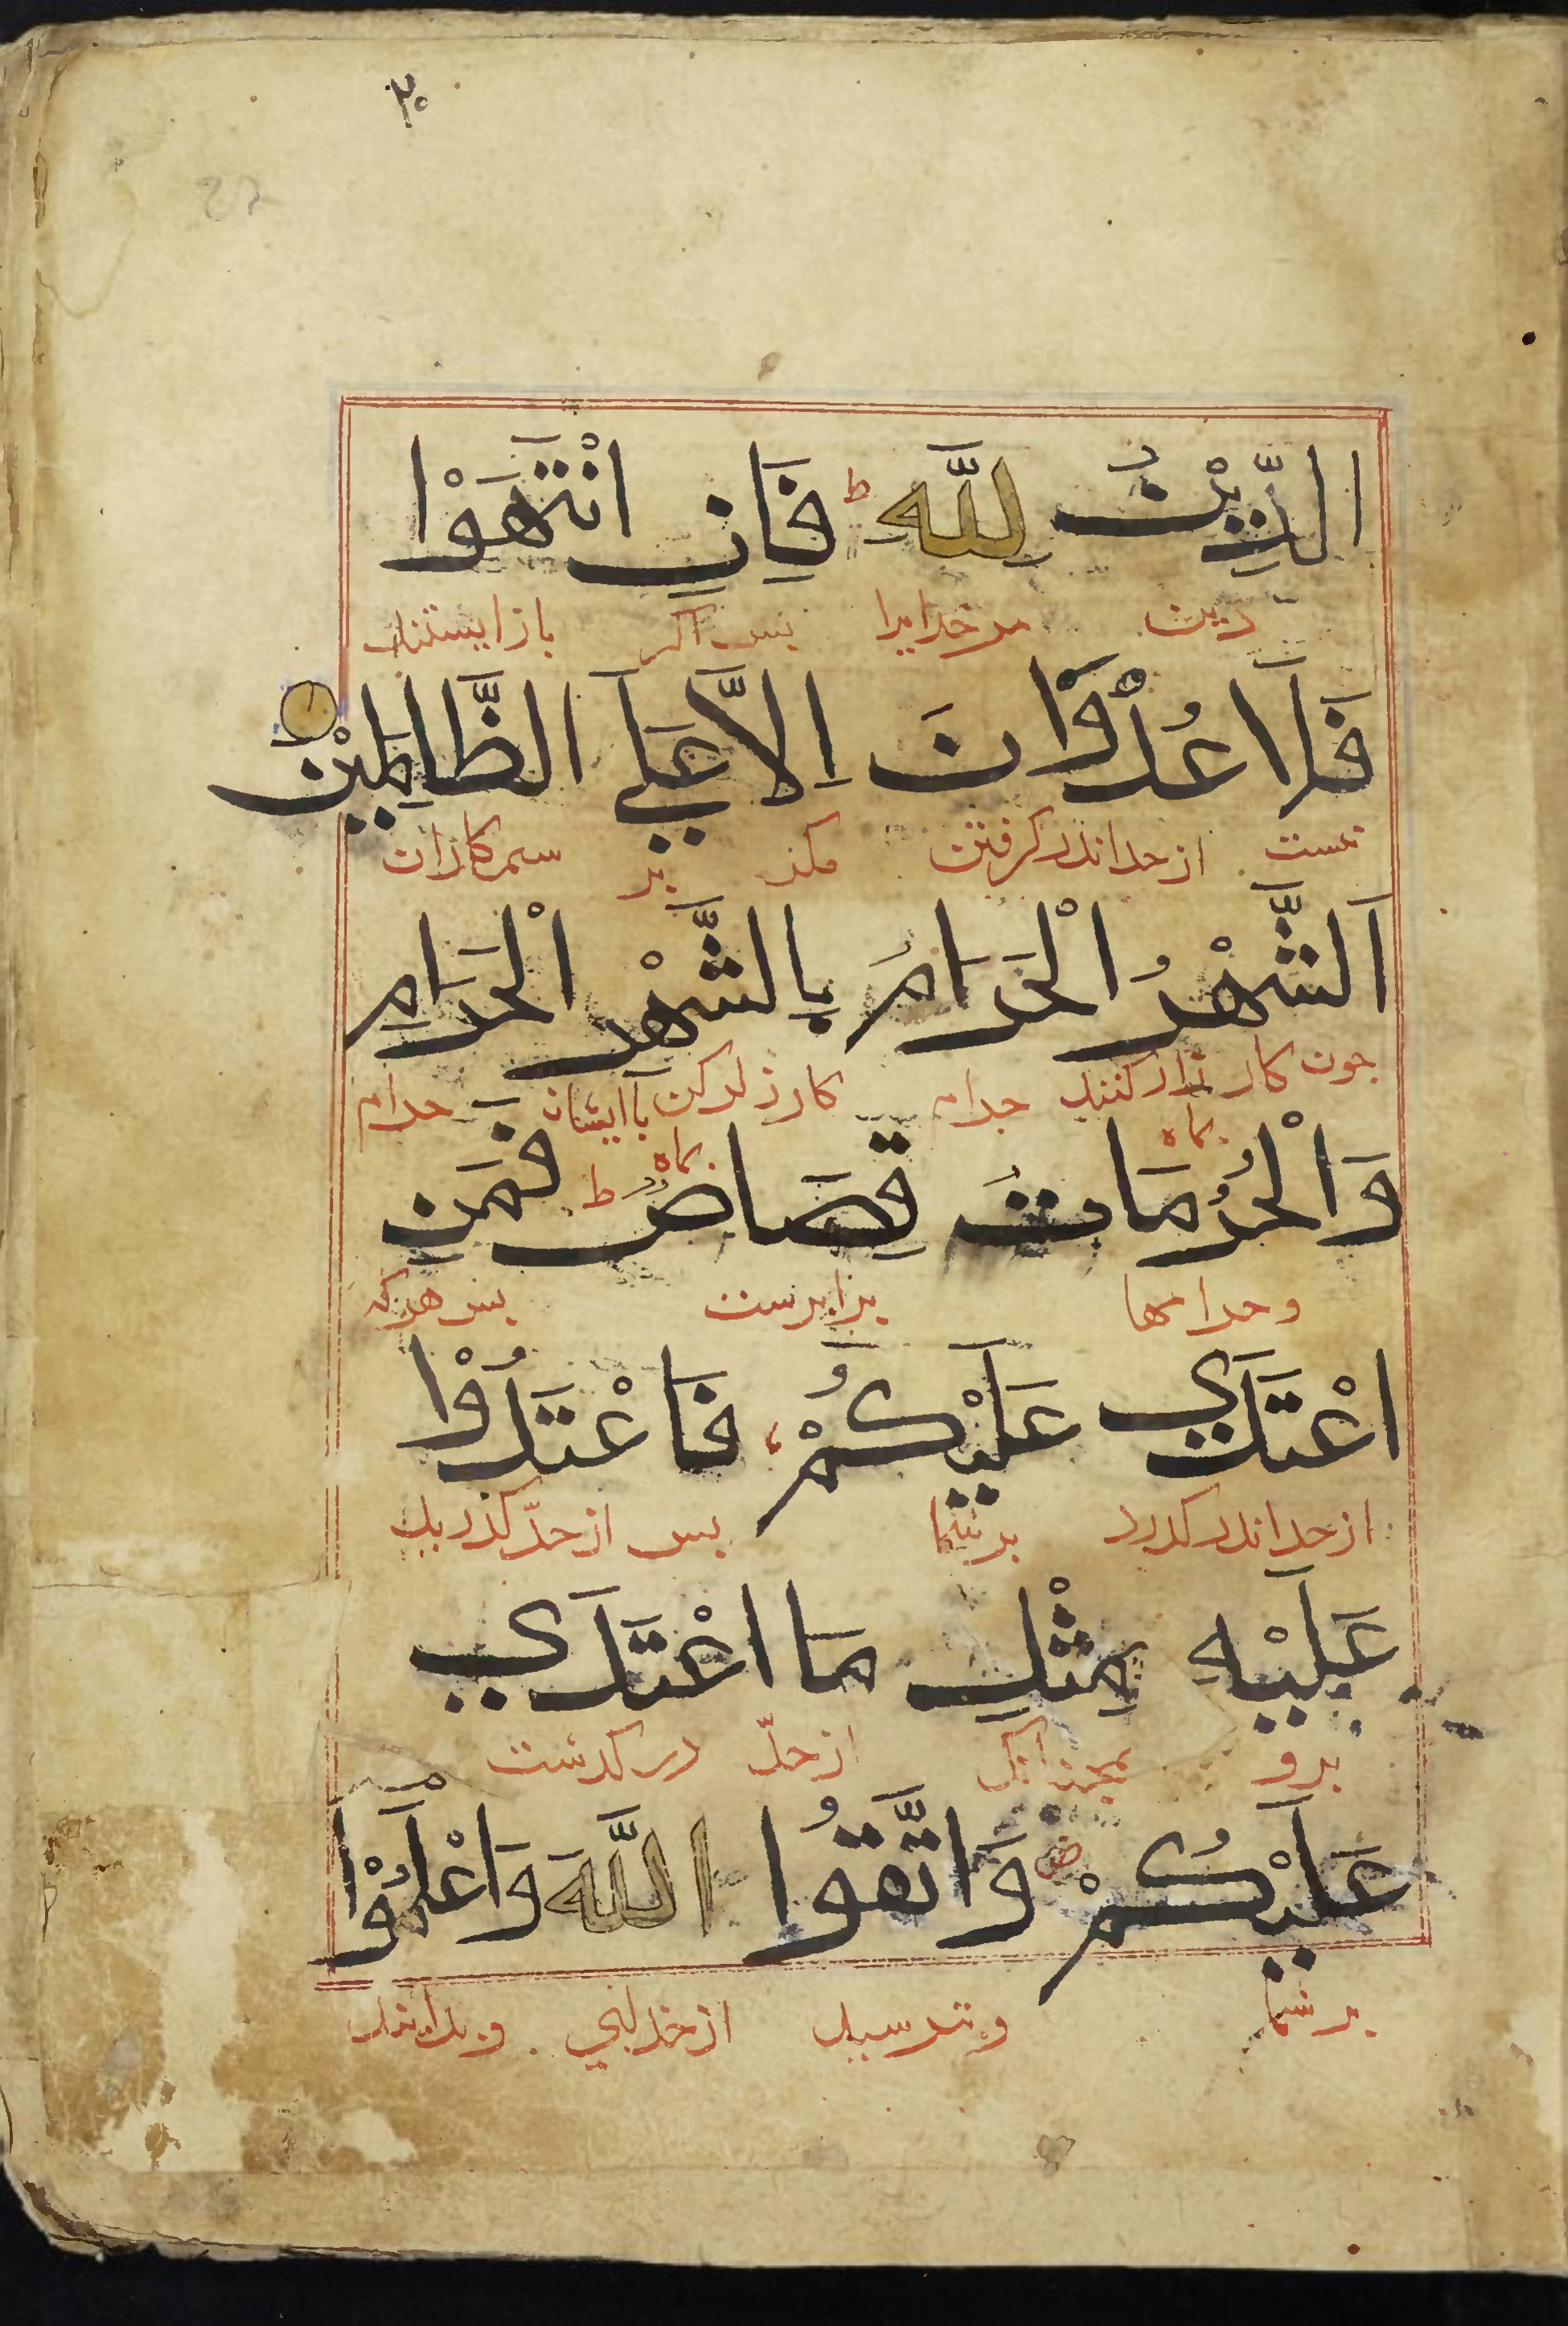 ۳۰
الدِّيْنُ لِلَّهِ ط فَاِنِ انْتَهَوْا
دين مر خدايرا بس اكر باز ايستند
فَلَا عُدْوَانَ اِلَّا عَلَى الظَّالِمِيْنَ
نيست از حد اندر كرفتن مكر بر ستمكاران
اَلشَّهْرُ الْحَرَامُ بِالشَّهْرِ الْحَرَامِ
جون كار زار كنند بماه حرام كارزار كن باايشان بماه حرام
وَالْحُرُمَاتُ قِصَاصٌ ط فَمَنِ
وحرامها برابرست بس هركه
اعْتَدَي عَلَيْكُمْ فَاعْتَدُوْا
از حد اندر كذرد بر شما بس از حدّ كذريد
عَلَيْهِ بِمِثْلِ مَا اعْتَدَي
برو از حدّ در كذشت
عَلَيْكُمْ ص وَاتَّقُوا اللَّهَ وَاعْلَمُوْا
بر شما وبترسيد از خداي وبدانيد